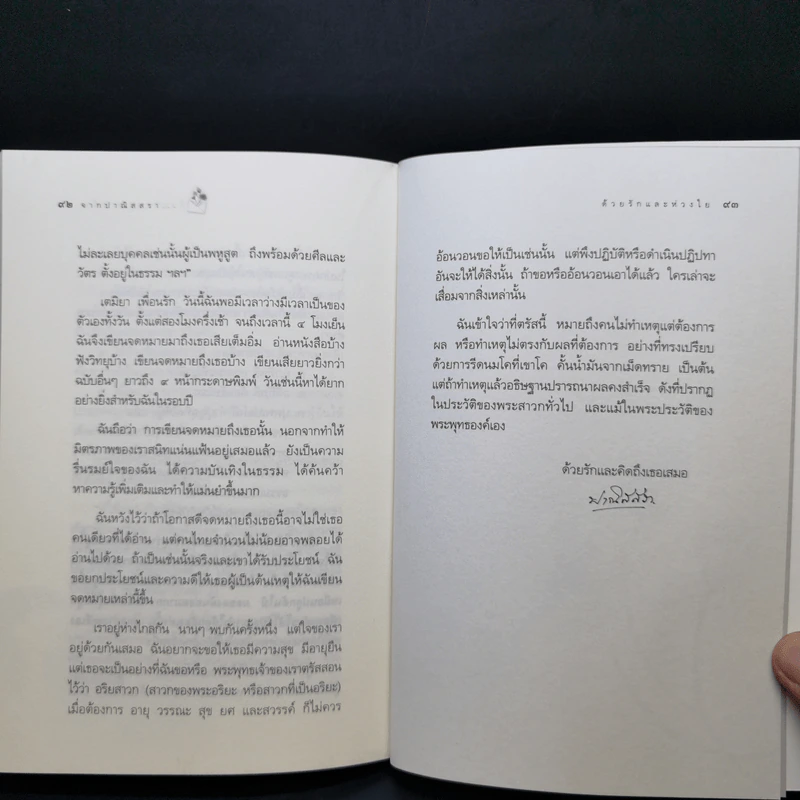 ๙๒ จากปาณิสสรา....
ไม่ละเลยบุคคลเช่นนั้นผู้เป็นพหูสูต ถึงพร้อมด้วยศีลและ
วัตร ตั้งอยู่ในธรรม ฯลฯ"
เตมิยา เพื่อนรัก วันนี้ฉันพอมีเวลาว่างมีเวลาเป็นของ
ตัวเองทั้งวัน ตั้งแต่สองโมงครึ่งเช้า จนถึงเวลานี้ ๔ โมงเย็น
ฉันจึงเขียนจดหมายมาถึงเธอเสียเต็มอิ่ม อ่านหนังสือบ้าง
ฟังวิทยุบ้าง เขียนจดหมายถึงเธอบ้าง เขียนเสียยาวยิ่งกว่า
ฉบับอื่นๆ ยาวถึง ๙ หน้ากระดาษพิมพ์ วันเช่นนี้หาได้ยาก
อย่างยิ่งสำหรับฉันในรอบปี
ฉันถือว่า การเขียนจดหมายถึงเธอนั้น นอกจากทำให้
มิตรภาพของเราสนิทแน่นแฟ้นอยู่เสมอแล้ว ยังเป็นความ
รื่นรมย์ใจของฉัน ได้ความบันเทิงในธรรม ได้ค้นคว้า
หาความรู้เพิ่มเติมและทำให้แม่นยำขึ้นมาก
ฉันหวังไว้ว่าถ้าโอกาสดีจดหมายถึงเธอนี้อาจไม่ใช่เธอ
คนเดียวที่ได้อ่าน แต่คนไทยจำนวนไม่น้อยอาจพลอยได้
อ่านไปด้วย ถ้าเป็นเช่นนั้นจริงและเขาได้รับประโยชน์ ฉัน
ขอยกประโยชน์และความดีให้เธอผู้เป็นต้นเหตุให้ฉันเขียน
จดหมายเหล่านี้ขึ้น
เราอยู่ห่างไกลกัน นานๆ พบกันครั้งหนึ่ง แต่ใจของเรา
อยู่ด้วยกันเสมอ ฉันอยากจะขอให้เธอมีความสุข มีอายุยืน
แต่เธอจะเป็นอย่างที่ฉันขอหรือ พระพุทธเจ้าของเราตรัสสอน
ไว้ว่า อริยสาวก (สาวกของพระอริยะ หรือสาวกที่เป็นอริยะ)
เมื่อต้องการ อายุ วรรณะ สุข ยศ และสวรรค์ ก็ไม่ควร
ด้วยรักและห่วงใย ๙๓
อ้อนวอนขอให้เป็นเช่นนั้น แต่พึงปฏิบัติหรือดำเนินปฏิปทา
อันจะให้ได้สิ่งนั้น ถ้าขอหรืออ้อนวอนเอาได้แล้ว ใครเล่าจะ
เสื่อมจากสิ่งเหล่านั้น
ฉันเข้าใจว่าที่ตรัสนี้ หมายถึงคนไม่ทำเหตุแต่ต้องการ
ผล หรือทำเหตุไม่ตรงกับผลที่ต้องการ อย่างที่ทรงเปรียบ
ด้วยการรีดนมโคที่เขาโค คั้นน้ำมันจากเม็ดทราย เป็นต้น
แต่ถ้าทำเหตุแล้วอธิษฐานปรารถนาผลคงสำเร็จ ดังที่ปรากฏ
ในประวัติของพระสาวกทั่วไป และแม้ในพระประวัติของ
พระพุทธองค์เอง
ด้วยรักและคิดถึงเธอเสมอ
ปาณิสสรา